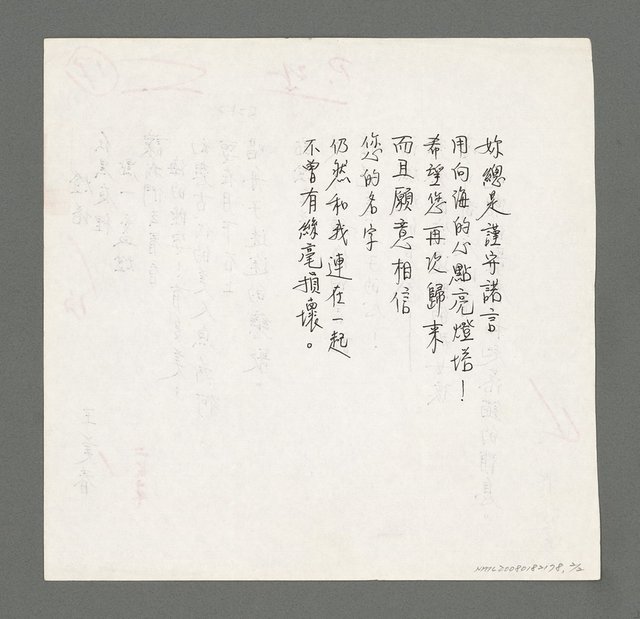 妳總是謹守諾言
用向海的心點亮燈塔！
希望您再次歸來
而且願意相信
您的名字
仍然和我連在一起
不曾有絲毫損壞。
NMTL20080182178, 2/2